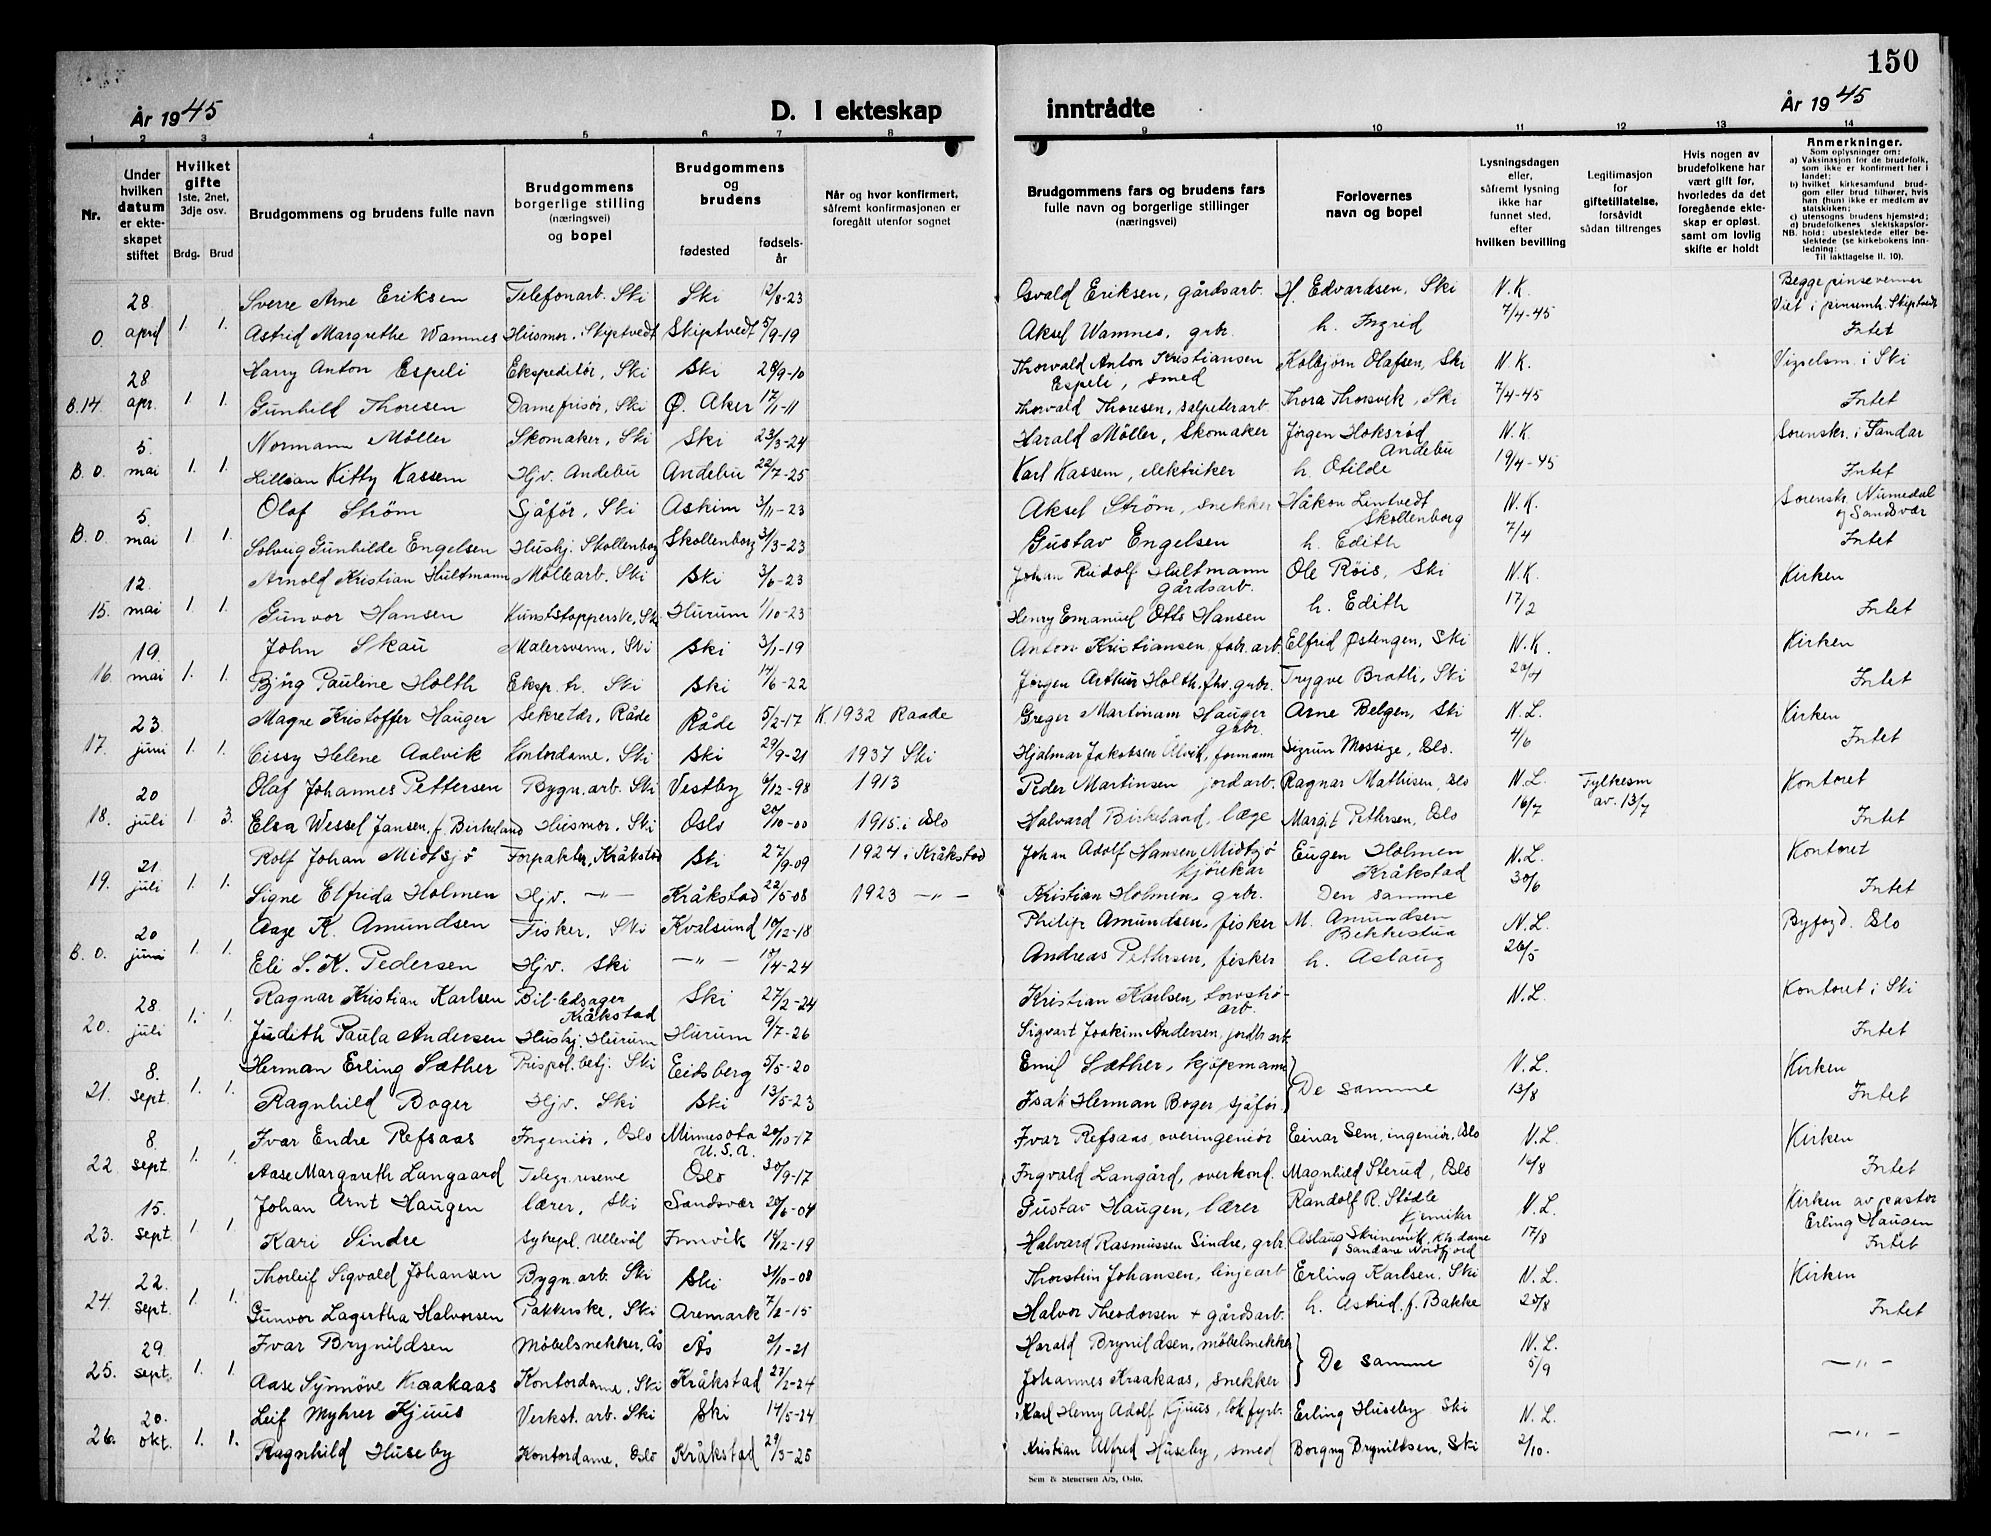 150
År 1945
D. I ekteskap inntrådte
År 1945
1 2 3 4 5 6 7 8 9 10 11 12 13 14
Nr.
Under hvilken datum er ekteskapet stiftet
Hvilket gifte 1ste, 2net, 3dje osv.
Brdg. Brud
Brudgommens og brudens fulle navn
Brudgommens borgerlige stilling (næringsvei) og bopel
Brudgommens og brudens
fødested
fødselsår
Når og hvor konfirmert, såfremt konfirmasjonen er foregått utenfor sognet
Brudgommens fars og brudens fars fulle navn og borgerlige stillinger (næringsvei)
Forlovernes navn og bopel
Lysningsdagen eller, såfremt lysning ikke har funnet sted, efter hvilken bevilling
Legitimasjon for giftetillatelse, forsåvidt sådan tiltrenges
Hvis nogen av brudefolkene har vært gift før, hvorledes da det foregående ekteskap er opløst, samt om lovlig skifte er holdt
Anmerkninger.
Som oplysninger om:
a) Vaksinasjon for de brudefolk, som ikke er konfirmert her i landet;
b) hvilket kirkesamfund brudgom eller brud tilhører, hvis han (hun) ikke er medlem av statskirken;
c) utensogns brudens hjemsted;
d) brudefolkenes slektskapsforhold: ubeslektede eller beslektede (se kirkebokens innledning:
NB.
Til iakttagelse II. 10).
28. Sverre Arne Eriksen Telefonarb. Ski Ski 12/8-23 Osvald Eriksen, gårdsarb. H. Edvardsen, Ski N.K. Begge pinsevenner
0. april 1. 1. Astrid Margrethe Wamnes Husmor. Skiptvedt Skiptvedt 5/9-19 Aksel Wamnes, grbr. h. Ingrid 7/4-45 Viet i pinsemh. Skiptvedt Intet
28 Harry Anton Espeli Ekspeditør, Ski Ski 28/9-10 Thorvald Anton Kristiansen Espeli, smed Kolbjørn Olafsen, Ski N.K. Vigselsm. i Ski
B.14. apr. 1 1. Gunhild Thoresen Damefrisør, Ski Ø. Aker 17/1-11 Thorvald Thoresen, salpeterarb. Thora Thorsvik, Ski 7/4-45 Intet
5. Normann Möller Skomaker, Ski Ski 23/3-24 Harald Möller, Skomaker Jörgen Hoksröd Andebu N.K. Sorenskr. i Sandar
B. 0. mai 1. 1. Lillian Kitty Kassem Hjv. Andebu Andebu 22/7-25 Karl Kassem, elektriker h. Otilde 19/4-45 Intet
5. Olaf Ström Sjåför, Ski Askim 3/11-23 Aksel Ström, snekker Håkon Lintvedt Skollenborg N.K. Sorenskr. Numedal og Sandsvær
B. 0 mai 1 1. Solveig Gunhilde Engelsen Hushj. Skollenborg Skollenborg 3/3-23 Gustav Engelsen h. Edith 7/4 Intet
12. Arnold Kristian Hultmann Möllearb. Ski Ski 3/6-23 Johan Rudolf Hultmann gårdsarb. Ole Röis, Ski N.K. Kirken
15. mai 1. 1. Gunvor Hansen Kunststopperske, Ski Hurum 1/10-23 Henry Emanuel Otto Hansen h. Edith 17/2 Intet
19. John Skau Malersvenn, Ski Ski 3/1-19 Anton Kristiansen, fabr. arb. Elfred Østengen, Ski N.K. Kirken
16. mai 1. 1. Bjørg Pauline Holth Eksp. tr. Ski Ski 14/6-22 Jørgen Arthur Holth, fhv. grbr. Trygve Bratli, Ski 20/4 Intet
23 Magne Kristoffer Hauger Sekretær, Råde Råde 5/2-17 K. 1932 Raade Greger Martinam Hauger grbr. Arne Belgen, Ski N.L. Kirken
17. juni 1. 1. Cissy Helene Aalvik Kontordame, Ski Ski 29/9-21 1937 Ski Hjalmar Jakobsen Ålvik, formann Sigrun Mossige, Oslo. 4/6 Intet
20 Olaf Johannes Pettersen Bygn. arb. Ski Vestby 6/12-98 1913 Peder Martinsen jordarb. Ragnar Mathisen, Oslo N.L. Fylkesm av. 13/7 Kontoret
18. juli 1. 3. Elsa Wessel Jansen, f. Birkeland Husmor. Ski Oslo 20/10-00 1915 i Oslo Halvard Birkeland, læge Margit Pettersen, Oslo 16/7 Intet
21. Rolf Johan Midtsjö Forpakter, Kråkstad Ski 27/9-09 1924 i Kråkstad Johan Adolf Hansen Midtsjö kjörekar Eugen Holmen Kråkstad N.L. Kontoret
19. juli 1. 1. Signe Elfreda Holmen Hjv. —"— Kråkstad 22/5-08 1923 —"— Kristian Holmen, grbr. Den samme 30/6 Intet
20 Aage K. Amundsen Fisker, Ski Kvalsund 10/12-18 Philip Amundsen, fisker M. Amundsen Bekkestua N.L. Byfogd. Oslo
B. 0. juni 1. 1. Eli S. K. Pedersen Hjv. Ski —"— 17/4-24 Andreas Pettersen, fisker h. Aslaug 26/5
28. Ragnar Kristian Karlsen Bil-ledsager Kråkstad Ski 27/2-24 Kristian Karlsen, arb. N.L. Kontoret i Ski
20. juli 1. 1. Judith Paula Andersen Hushj. Hurum Hurum 9/7-26 Sigvart Joakim Andersen, jordbr. arb. Intet
8. Herman Erling Sæther Prispol. betj. Ski Eidsberg 5/5-20 Emil Sæther, kjöpmann De samme N.L. Kirken
21. sept. 1. 1. Ragnhild Boger Hjv. Ski Ski 13/5-23 Isak Herman Boger sjåför. 13/8 Intet
8. Ivar Endre Refsaas Ingeniör, Oslo Minnesota U.S.A. 20/10-17 Ivar Refsaas, overingeniör Einar Sem, ingeniör, Oslo N.L. Kirken
22 sept. 1. 1. Aase Margareth Langaard Telegr. reserve Oslo 30/9-17 Ingvald Langård, overkond. Magnhild Sterud, Oslo 16/8 Intet
15. Johan Arnt Haugen lærer, Ski Sandsvær 20/6-04 Gustav Haugen, lærer Randolf R. Stödle kjemiker N.L. Kirken av pastor Erling Haugen
23. sept. 1. 1. Kari Sindre Sykepl. Ullevål Innvik 14/12-19 Halvard Rasmussen Sindre, grbr. Aslaug Sandane Nordfjord 17/8 Intet
22. Thorleif Sigvald Johansen Bygn. arb. Ski Ski 31/10-08 Thorstein Johansen, linjearb Erling Karlsen, Ski N.L. Kirken
24. sept. 1. 1. Gunvor Lagertha Halvorsen Pakkerske, Ski Aremark 7/2-15 Halvor Theodorsen + gårdsarb. h. Astrid f. Bakke 20/8 Intet
29. Ivar Brynildsen Möbelsnekker, Ås Ås 2/1-21 Harald Brynildsen, möbelsnekker De samme N.L.
25. sept. 1. 1. Aase Synnöve Kraakaas Kontordame, Ski Kråkstad 27/2-24 Johannes Kraakaas, snekker 5/9 —"—
20. Leif Myhrer Kjuus Verkst. arb. Ski Ski 14/5-24 Karl Henry Adolf Kjuus, lok.fyrb. Erling Huseby Ski N.L.
26. okt. 1. 1. Ragnhild Huseby Kontordame, Oslo Kråkstad 29/3-25 Kristian Alfred Huseby, smed Borgny Brynildsen, Ski 2/10. —"—
Sem & Stenersen A/S, Oslo.